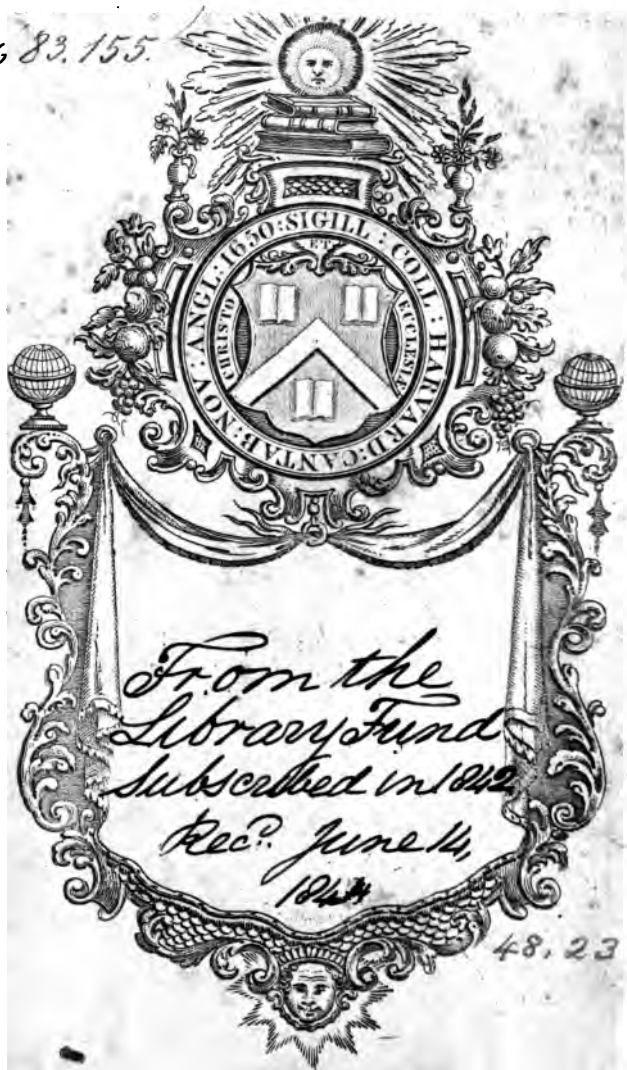 83.155.
SIGILL : COLL : HARVARD : CANTAB : NOV : ANGL : 1650 :
ET
CHRISTO
ECCLESIÆ
From the
Library Fund
Subscribed in 1842
Rec'd. June 14,
1844
48.23